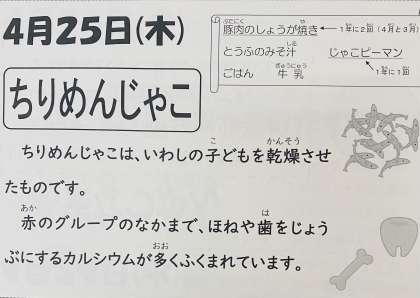 4月25日(木)
豚肉のしょうが焼き ← 1年に2回(4月と3月)
とうふのみそ汁 じゃこピーマン
ごはん 牛乳 1年に1回
ちりめんじゃこ
ちりめんじゃこは、いわしの子どもを乾燥させ
たものです。
赤のグループのなかまで、ほねや歯をじょう
ぶにするカルシウムが多くふくまれています。